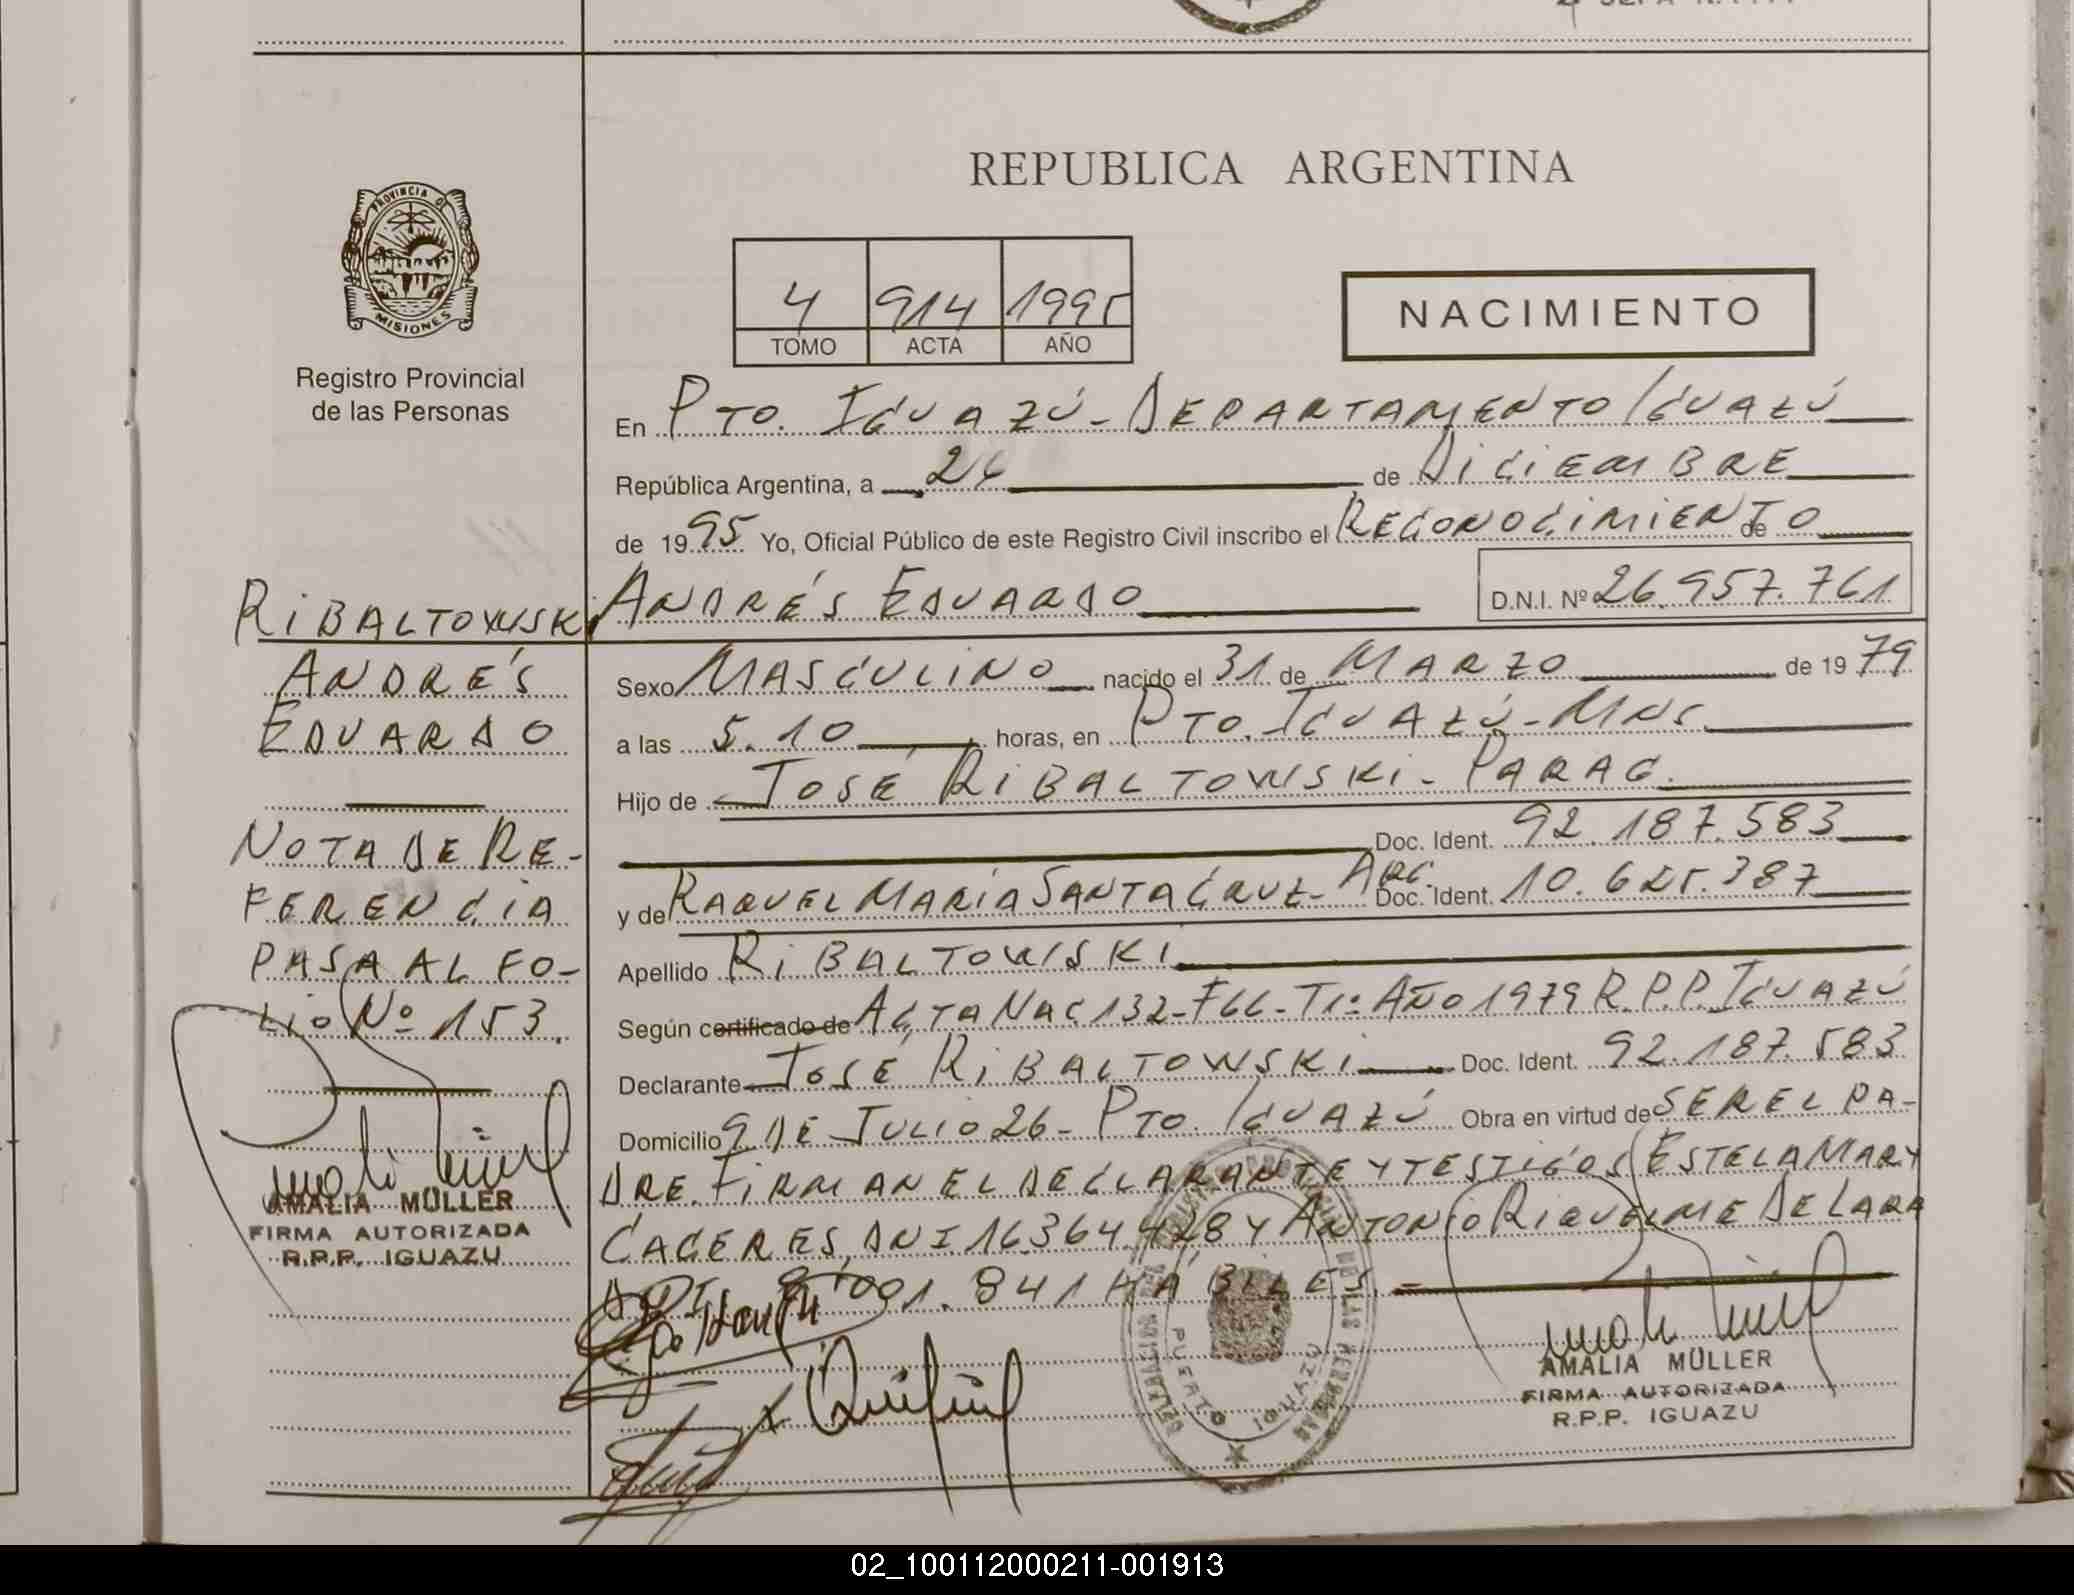 PROVINCIA DE
MISIONES
Registro Provincial
de las Personas
RIBALTOWSKI
ANDRÉS
EDUARDO
NOTA DE RE-
FERENCIA
PASA AL FO-
LIO Nº 153.
AMALIA MÜLLER
FIRMA AUTORIZADA
R.P.P. IGUAZU
REPUBLICA ARGENTINA
4 914 1995
TOMO ACTA AÑO
NACIMIENTO
En PTO. IGUAZÚ - DEPARTAMENTO IGUAZÚ
República Argentina, a 26 de DICIEMBRE
de 1995 Yo, Oficial Público de este Registro Civil inscribo el RECONOCIMIENTO de
ANDRÉS EDUARDO D.N.I. Nº 26.957.761
Sexo MASCULINO nacido el 31 de MARZO de 1979
a las 5.10 horas, en PTO. IGUAZÚ - MNS.
Hijo de JOSÉ RIBALTOWSKI - PARAG.
Doc. Ident. 92.187.583
y de RAQUEL MARÍA SANTA CRUZ - ARG. Doc. Ident. 10.625.387
Apellido RIBALTOWSKI
Según certificado de ACTA NAC 132 - F66 - T1º AÑO 1979 R.P.P. IGUAZÚ
Declarante JOSÉ RIBALTOWSKI Doc. Ident. 92.187.583
Domicilio 9 DE JULIO 26 - PTO. IGUAZÚ Obra en virtud de SER EL PA-
DRE. FIRMAN EL DECLARANTE Y TESTIGOS ESTELA MARY
CACERES, DNI 16.364.428 Y ANTONIO RIQUELME DE LARA
.001.841 HÁBILES.
PUERTO IGUAZU
AMALIA MÜLLER
FIRMA AUTORIZADA
R.P.P. IGUAZU
02_100112000211-001913